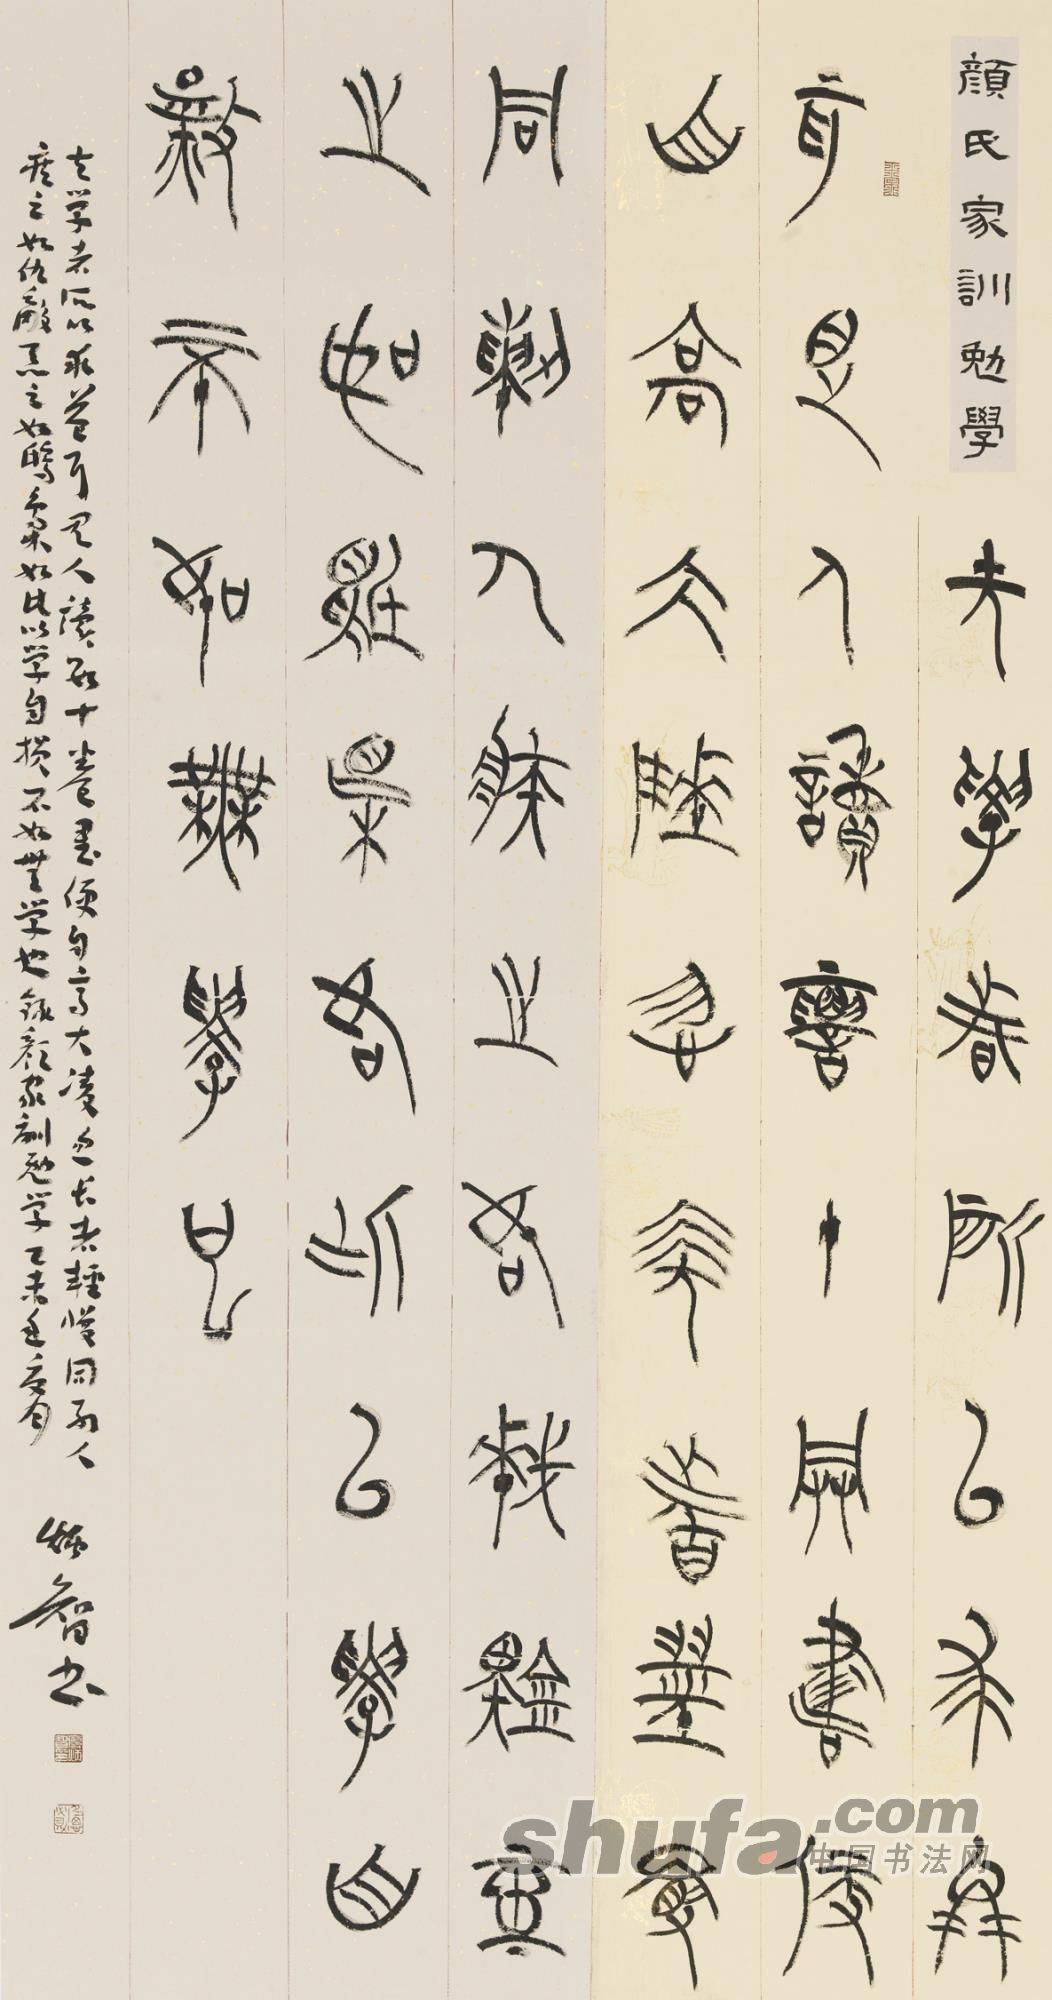 顏氏家訓勉學
夫學者所以求益
耳見人讀數十卷書便
自高大陵忽長者輕慢
同列人疾之如仇敵惡
之如鴟梟如此以學自
損不如無學也
夫学者所以求益耳見人讀數十卷書便自高大凌忽長者輕慢同列人
疾之如仇敵惡之如鴟梟如此以学自損不如無学也錄顏家訓勉学乙未年夏月
智书
shufa.com
中国书法网